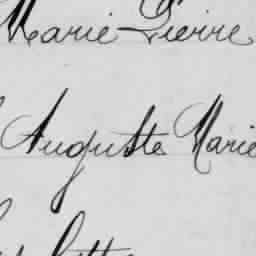 Marie Pierre
Auguste Marie